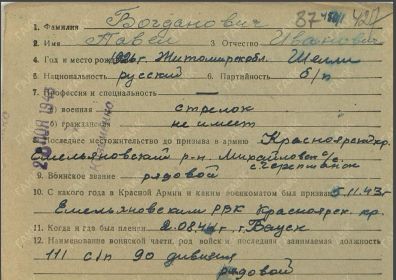 87
1. Фамилия Богданович
2. Имя Павел 3. Отчество Иванович
4. Год и место рожд. 1926г. Житомир. обл.
6. Национальность русский 6. Партийность б/п
7. Профессия и специальность —
а) военная стрелок
б) гражданская не имеет
8. Последнее местожительство до призыва в армию Красноярский кр.
Емельяновский р-н. Михайловск с/с
9. Воинское звание рядовой
10. С какого года в Красной Армии и каким военкоматом был призван 5.11.43г
Емельяновским РВК Красноярск. кр.
11. Когда и где был пленен 2.08.44г. г. Бауск
12. Наименование воинской части, род войск и последняя занимаемая должность
111 с/п 90 дивизия
рядовой